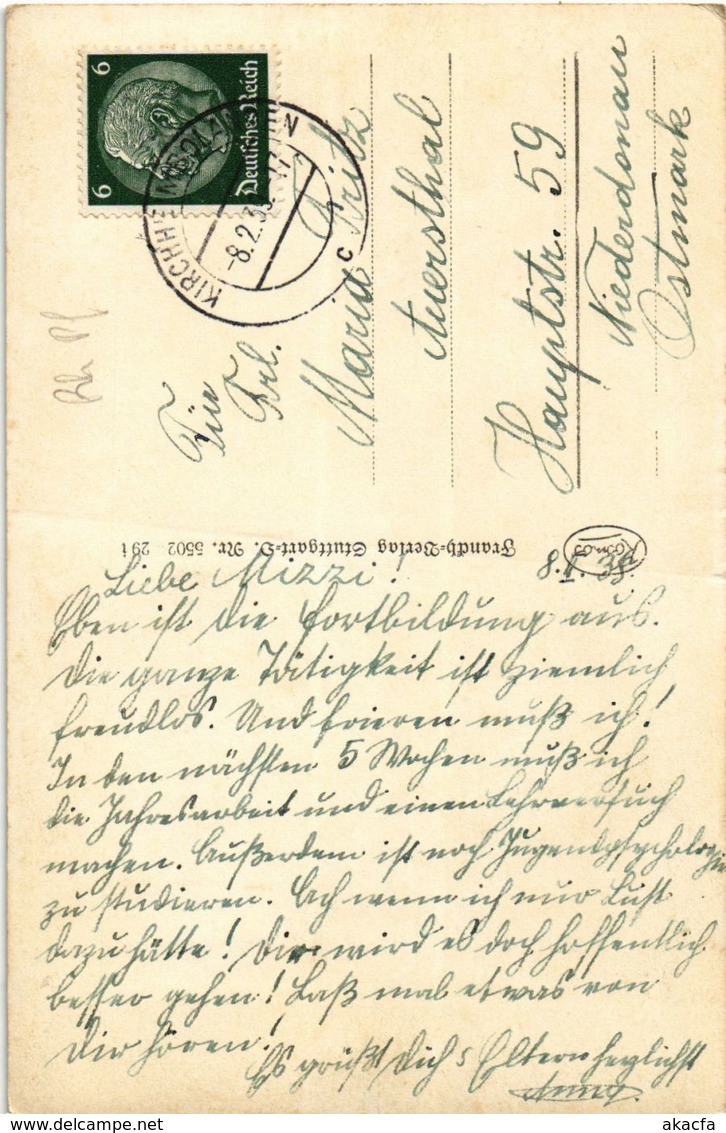 6 6
Deutsches Reich
KIRCHHEIM
-8.2.39 -17
c
Für
Frl.
Maria Fritz
Auersthal
Hauptstr. 59
Niederdonau
Ostmark
Franckh-Verlag Stuttgart-O. Nr. 5502 29 i
8.II.39.
Liebe Mizzi!
Eben ist die Fortbildung aus.
Die ganze Tätigkeit ist ziemlich
freudlos. Und frieren muß ich!
In den nächsten 5 Wochen muß ich
die Jahresarbeit und einen Lehrversuch
machen. Außerdem ist noch Jugendpsychologie
zu studieren. Ach wenn ich nur Lust
dazu hätte! Dir wird es doch hoffentlich
besser gehen! Laß mal etwas von
Dir hören!
Es grüßt Dich Eltern herzlichst
Anna.
www.akacfa.com akacfa